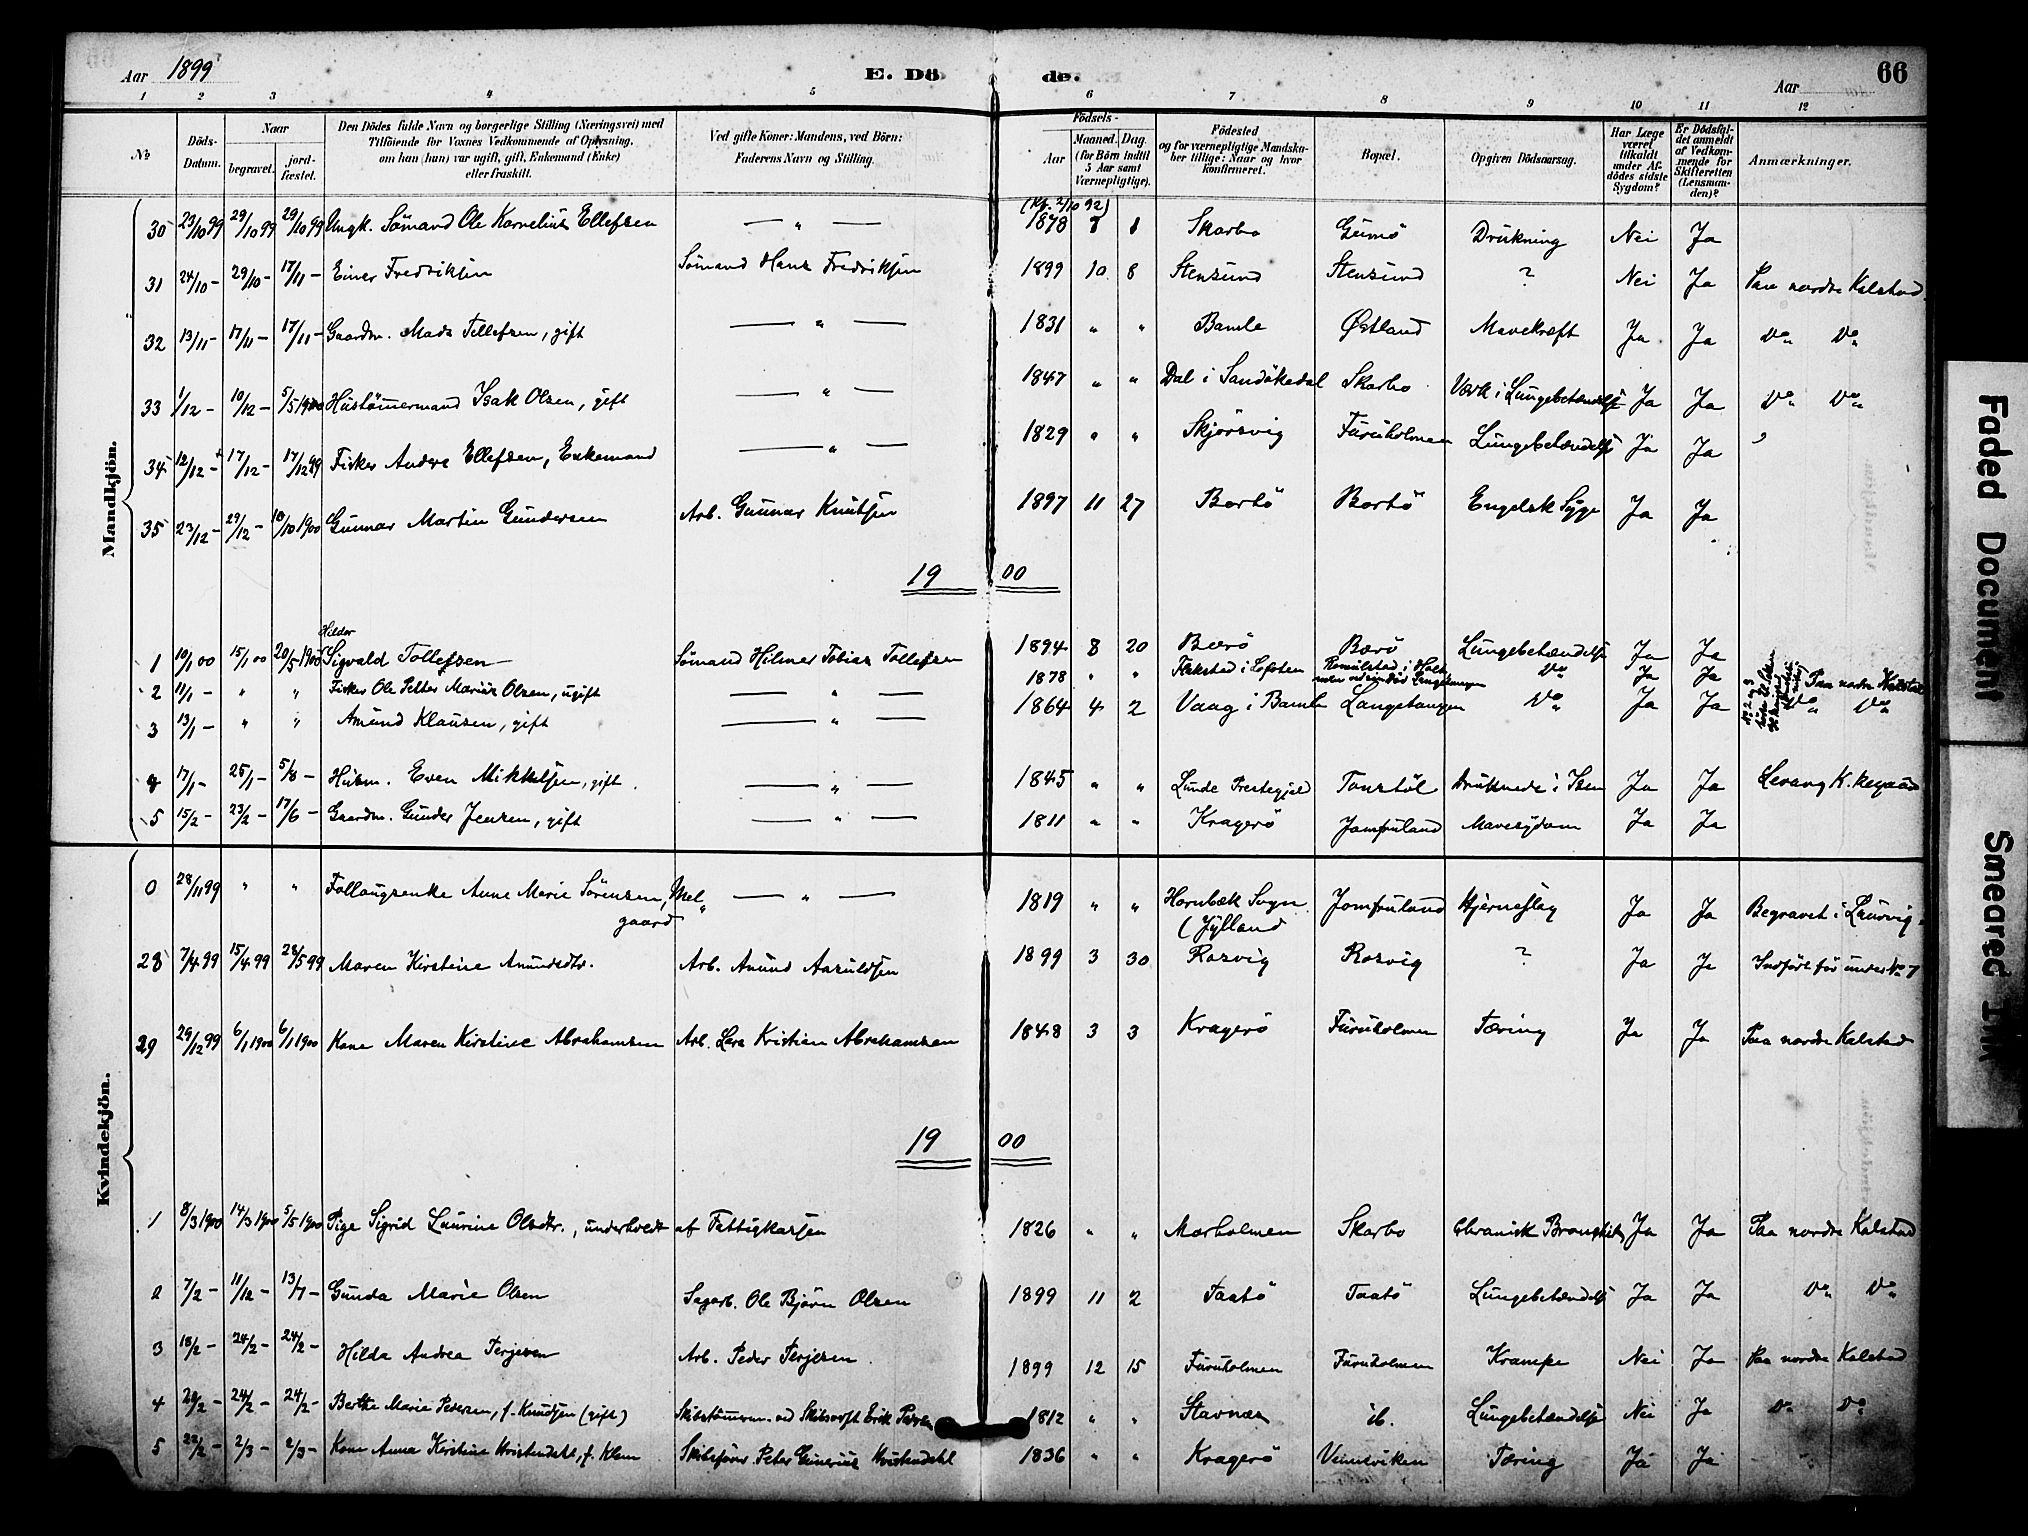 Aar 1899
E. Döde.
Aar
66
1 2 3 4 5 6 7 8 9 10 11 12
No
Döds-Datum.
Naar
begravet.
jord-fæstet.
Den Dödes fulde Navn og borgerlige Stilling (Næringsvei) med
Tilföiende for Voxnes Vedkommende af Oplysning,
om han (hun) var ugift, gift, Enkemand (Enke)
eller fraskilt.
Ved gifte Koner: Mandens, ved Börn:
Faderens Navn og Stilling.
Födsels-
Aar
Maaned. Dag.
(for Börn indtil
5 Aar samt
Værnepligtige).
Födested
og for værnepligtige Mandska-
ber tillige: Naar og hvor
konfirmeret.
Bopæl.
Opgiven Dödsaarsag.
Har Læge
været
tilkaldt
under Af-
dödes sidste
Sygdom?
Er Dödsfal-
det anmeldt
af Vedkom-
mende for
Skifteretten
(Lensman-
den)?
Anmærkninger.
Mandkjön.
30 23/10 99 29/10 99 29/10 99 Ungk. Sömand Ole Kornelius Ellefsen — " — 1878 8 1 Skarbo Gumö Drukning Nei Ja
31 24/10 - 29/10 - 17/11 - Einer Fredriksen Sömand Hans Fredriksen 1899 10 8 Stensund Stensund ? Nei Ja Paa nordre Kalstad.
32 13/11 - 17/11 - 17/11 - Gaardm. Mads Tellefsen, gift — " — 1831 " " Bamle Østland Mavekræft Ja Ja Do Do
33 1/12 - 10/12 - 5/5 1900 Hustömmermand Isak Olsen, gift — " — 1847 " " Dal i Sandökedal Skarbo Værk i Lungebetændelse Ja Ja Do Do
34 12/12 - 17/12 - 17/12 99 Fisker Anders Ellefsen, Enkemand — " — 1829 " " Skjörsvig Furuholmen Lungebetændelse Ja Ja
35 23/12 - 29/12 - 18/10 1900 Gunnar Martin Gundersen Arb. Gunnar Knutsen 1897 11 27 Bortö Bortö Engelsk Syge Ja Ja
19 00
1 10/1 00 15/1 00 20/5 1900 Hildor Sigvald Tollefsen Sömand Hilmer Tobias Tollefsen 1894 8 20 Bærö Bærö Lungebetændelse Ja Ja
2 11/1 - " " Fisker Ole Petter Marius Olsen, ugift — " — 1878 " " Lofoten Do Ja Ja Paa nordre Kalstad
3 13/1 - " " Amund Klausen, gift — " — 1864 4 2 Vaag i Bamle Langetangen Do Ja Ja Do Do
4 17/1 - 25/1 - 5/8 - Husm. Even Mikkelsen, gift. — " — 1845 " " Lunde Prestegjeld Tonstöl Druknede i Isen Ja Ja Levang K.kegaard
5 15/2 - 23/2 - 17/6 - Gaardm. Gunder Jensen, gift — " — 1811 " " Kragerö Jomfruland Mavesygdom Ja Ja
Kvindekjön.
0 28/11 99 " " Follaugsenke Anne Marie Sörensen, Mel-
gaard — " — 1819 " " Hornbæk Sogn
(Jylland Jomfruland Hjerneslag Ja Ja Begravet i Laurvig.
28 7/4 99 15/4 99 28/5 99 Maren Kirstine Amundsdtr. Arb. Amund Aasuldsen 1899 3 30 Rosvig Rosvig ? Ja Ja Indført før under No 7
29 29/12 99 6/1 1900 6/1 1900 Kone Maren Kirstine Abrahamsen Arb. Lars Kristian Abrahamsen 1848 3 3 Kragerö Furuholmen Tæring Ja Ja Paa nordre Kalstad
19 00
1 8/3 1900 14/3 1900 5/5 1900 Pige Sigrid Laurine Olsdtr., underholdt af Fattigkassen 1826 " " Morholmen Skarbo Chronisk Bronchit Ja Ja Paa nordre Kalstad
2 7/2 - 11/12 - 13/7 - Gunda Marie Olsen Sagarb. Ole Bjørn Olsen 1899 11 2 Taatö Taatö Lungebetændelse Ja Ja Do Do
3 18/2 - 24/2 - 24/2 - Hilda Andrea Terjesen Arb. Peder Terjesen. 1899 12 15 Furuholmen Furuholmen Krampe Nei Ja Paa nordre Kalstad
4 20/2 - 24/2 - 24/2 - Berthe Marie Pedersen, f. Knudsen (gift) Skibstömmerm. ved Skibsværft Erik 1812 " " Stavnæs ib. Lungebetændelse Nei Ja Do Do
5 22/2 - 2/3 - 2/3 - Kone Anna Kirstine Hvistendahl, f. Klem Skibsförer Peter Gunerius Hvistendahl 1836 " " Kragerö Veumviken Tæring Ja Ja
Faded Document
Smeared Ink